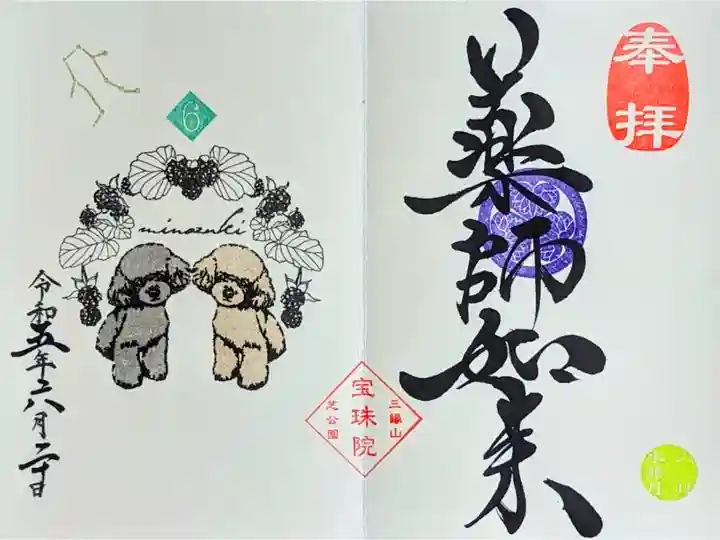 奉拝
薬師如来
三縁山
宝珠院
芝公園
6
minazuki
令和五年六月二十日